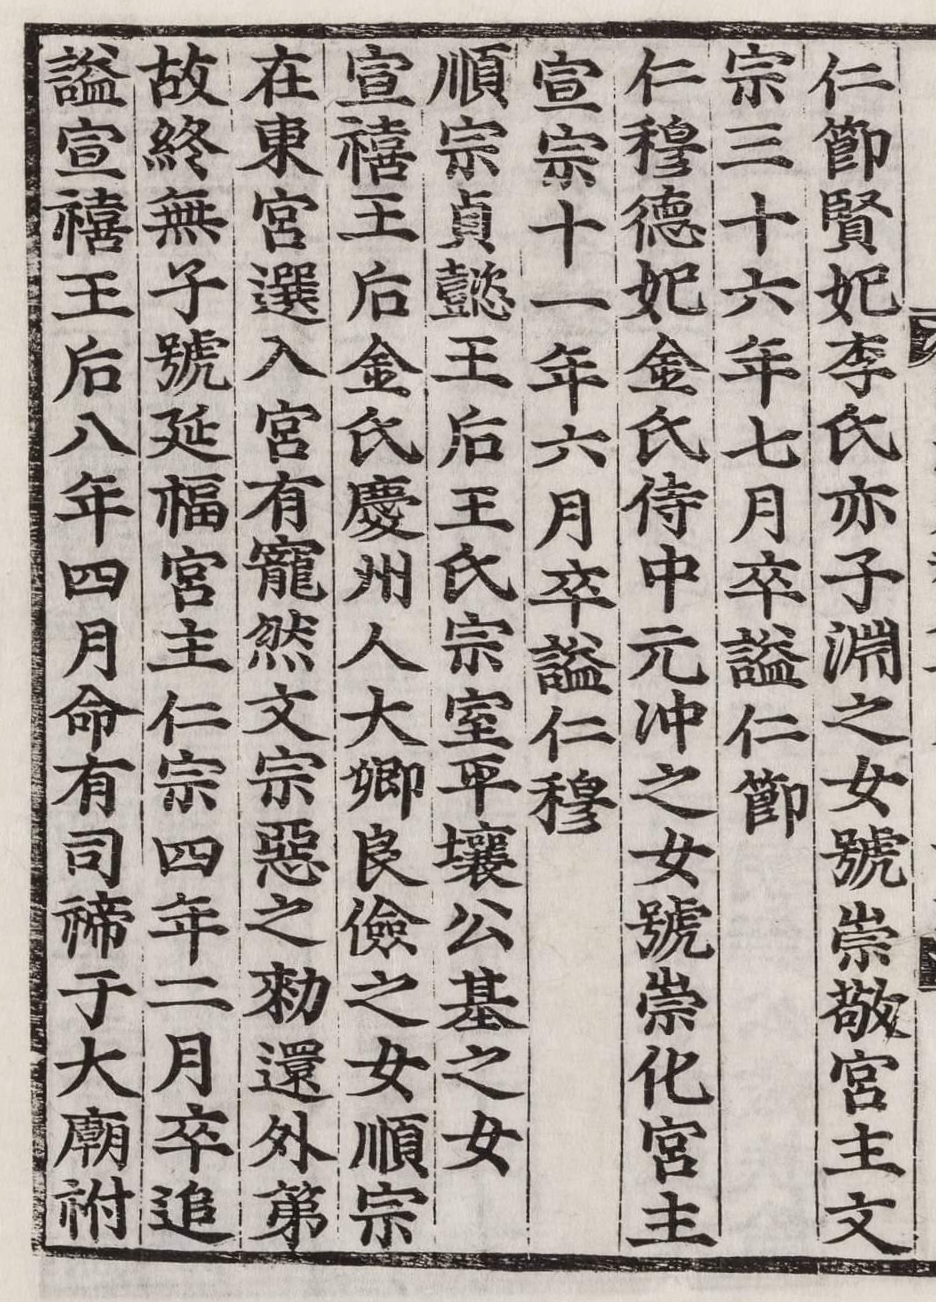 仁節賢妃李氏亦子淵之女號崇敬宮主文
宗三十六年七月卒謚仁節
仁穆德妃金氏侍中元冲之女號崇化宮主
宣宗十一年六月卒謚仁穆
順宗貞懿王后王氏宗室平壤公基之女
宣禧王后金氏慶州人大卿良儉之女順宗
在東宮選入宮有寵然文宗惡之勑還外第
故終無子號延福宮主仁宗四年二月卒追
謚宣禧王后八年四月命有司禘于大廟祔